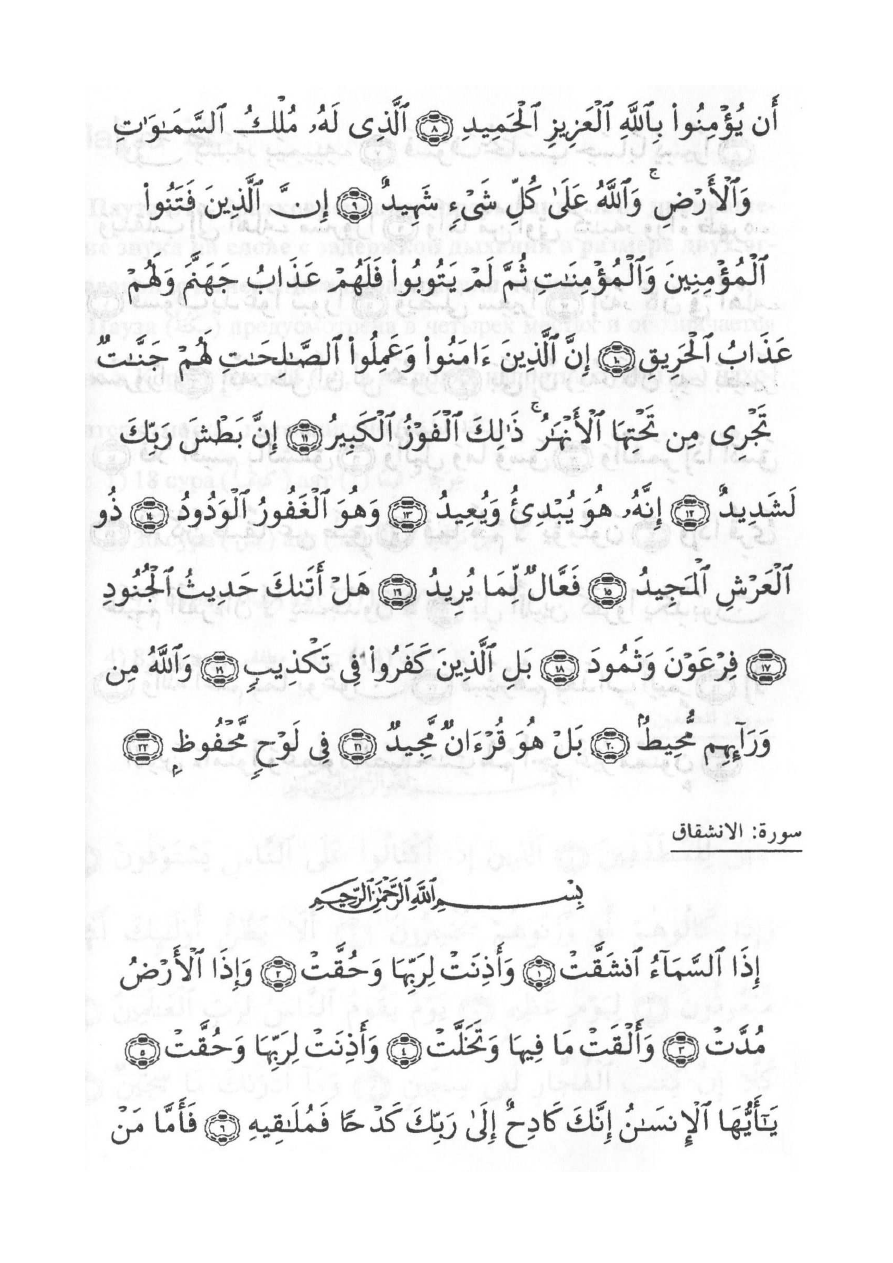 أَن يُؤْمِنُوا۟ بِٱللَّهِ ٱلْعَزِيزِ ٱلْحَمِيدِ ٨ ٱلَّذِى لَهُۥ مُلْكُ ٱلسَّمَٰوَٰتِ
وَٱلْأَرْضِ ۚ وَٱللَّهُ عَلَىٰ كُلِّ شَىْءٍ شَهِيدٌ ٩ إِنَّ ٱلَّذِينَ فَتَنُوا۟
ٱلْمُؤْمِنِينَ وَٱلْمُؤْمِنَٰتِ ثُمَّ لَمْ يَتُوبُوا۟ فَلَهُمْ عَذَابُ جَهَنَّمَ وَلَهُمْ
عَذَابُ ٱلْحَرِيقِ ١٠ إِنَّ ٱلَّذِينَ ءَامَنُوا۟ وَعَمِلُوا۟ ٱلصَّٰلِحَٰتِ لَهُمْ جَنَّٰتٌ
تَجْرِى مِن تَحْتِهَا ٱلْأَنْهَٰرُ ۚ ذَٰلِكَ ٱلْفَوْزُ ٱلْكَبِيرُ ١١ إِنَّ بَطْشَ رَبِّكَ
لَشَدِيدٌ ١٢ إِنَّهُۥ هُوَ يُبْدِئُ وَيُعِيدُ ١٣ وَهُوَ ٱلْغَفُورُ ٱلْوَدُودُ ١٤ ذُو
ٱلْعَرْشِ ٱلْمَجِيدُ ١٥ فَعَّالٌ لِّمَا يُرِيدُ ١٦ هَلْ أَتَىٰكَ حَدِيثُ ٱلْجُنُودِ
١٧ فِرْعَوْنَ وَثَمُودَ ١٨ بَلِ ٱلَّذِينَ كَفَرُوا۟ فِى تَكْذِيبٍ ١٩ وَٱللَّهُ مِن
وَرَآئِهِم مُّحِيطٌۢ ٢٠ بَلْ هُوَ قُرْءَانٌ مَّجِيدٌ ٢١ فِى لَوْحٍ مَّحْفُوظٍۭ ٢٢
سورة: الانشقاق
بِسْمِ ٱللَّهِ ٱلرَّحْمَٰنِ ٱلرَّحِيمِ
إِذَا ٱلسَّمَآءُ ٱنشَقَّتْ ١ وَأَذِنَتْ لِرَبِّهَا وَحُقَّتْ ٢ وَإِذَا ٱلْأَرْضُ
مُدَّتْ ٣ وَأَلْقَتْ مَا فِيهَا وَتَخَلَّتْ ٤ وَأَذِنَتْ لِرَبِّهَا وَحُقَّتْ ٥
يَٰٓأَيُّهَا ٱلْإِنسَٰنُ إِنَّكَ كَادِحٌ إِلَىٰ رَبِّكَ كَدْحًا فَمُلَٰقِيهِ ٦ فَأَمَّا مَنْ